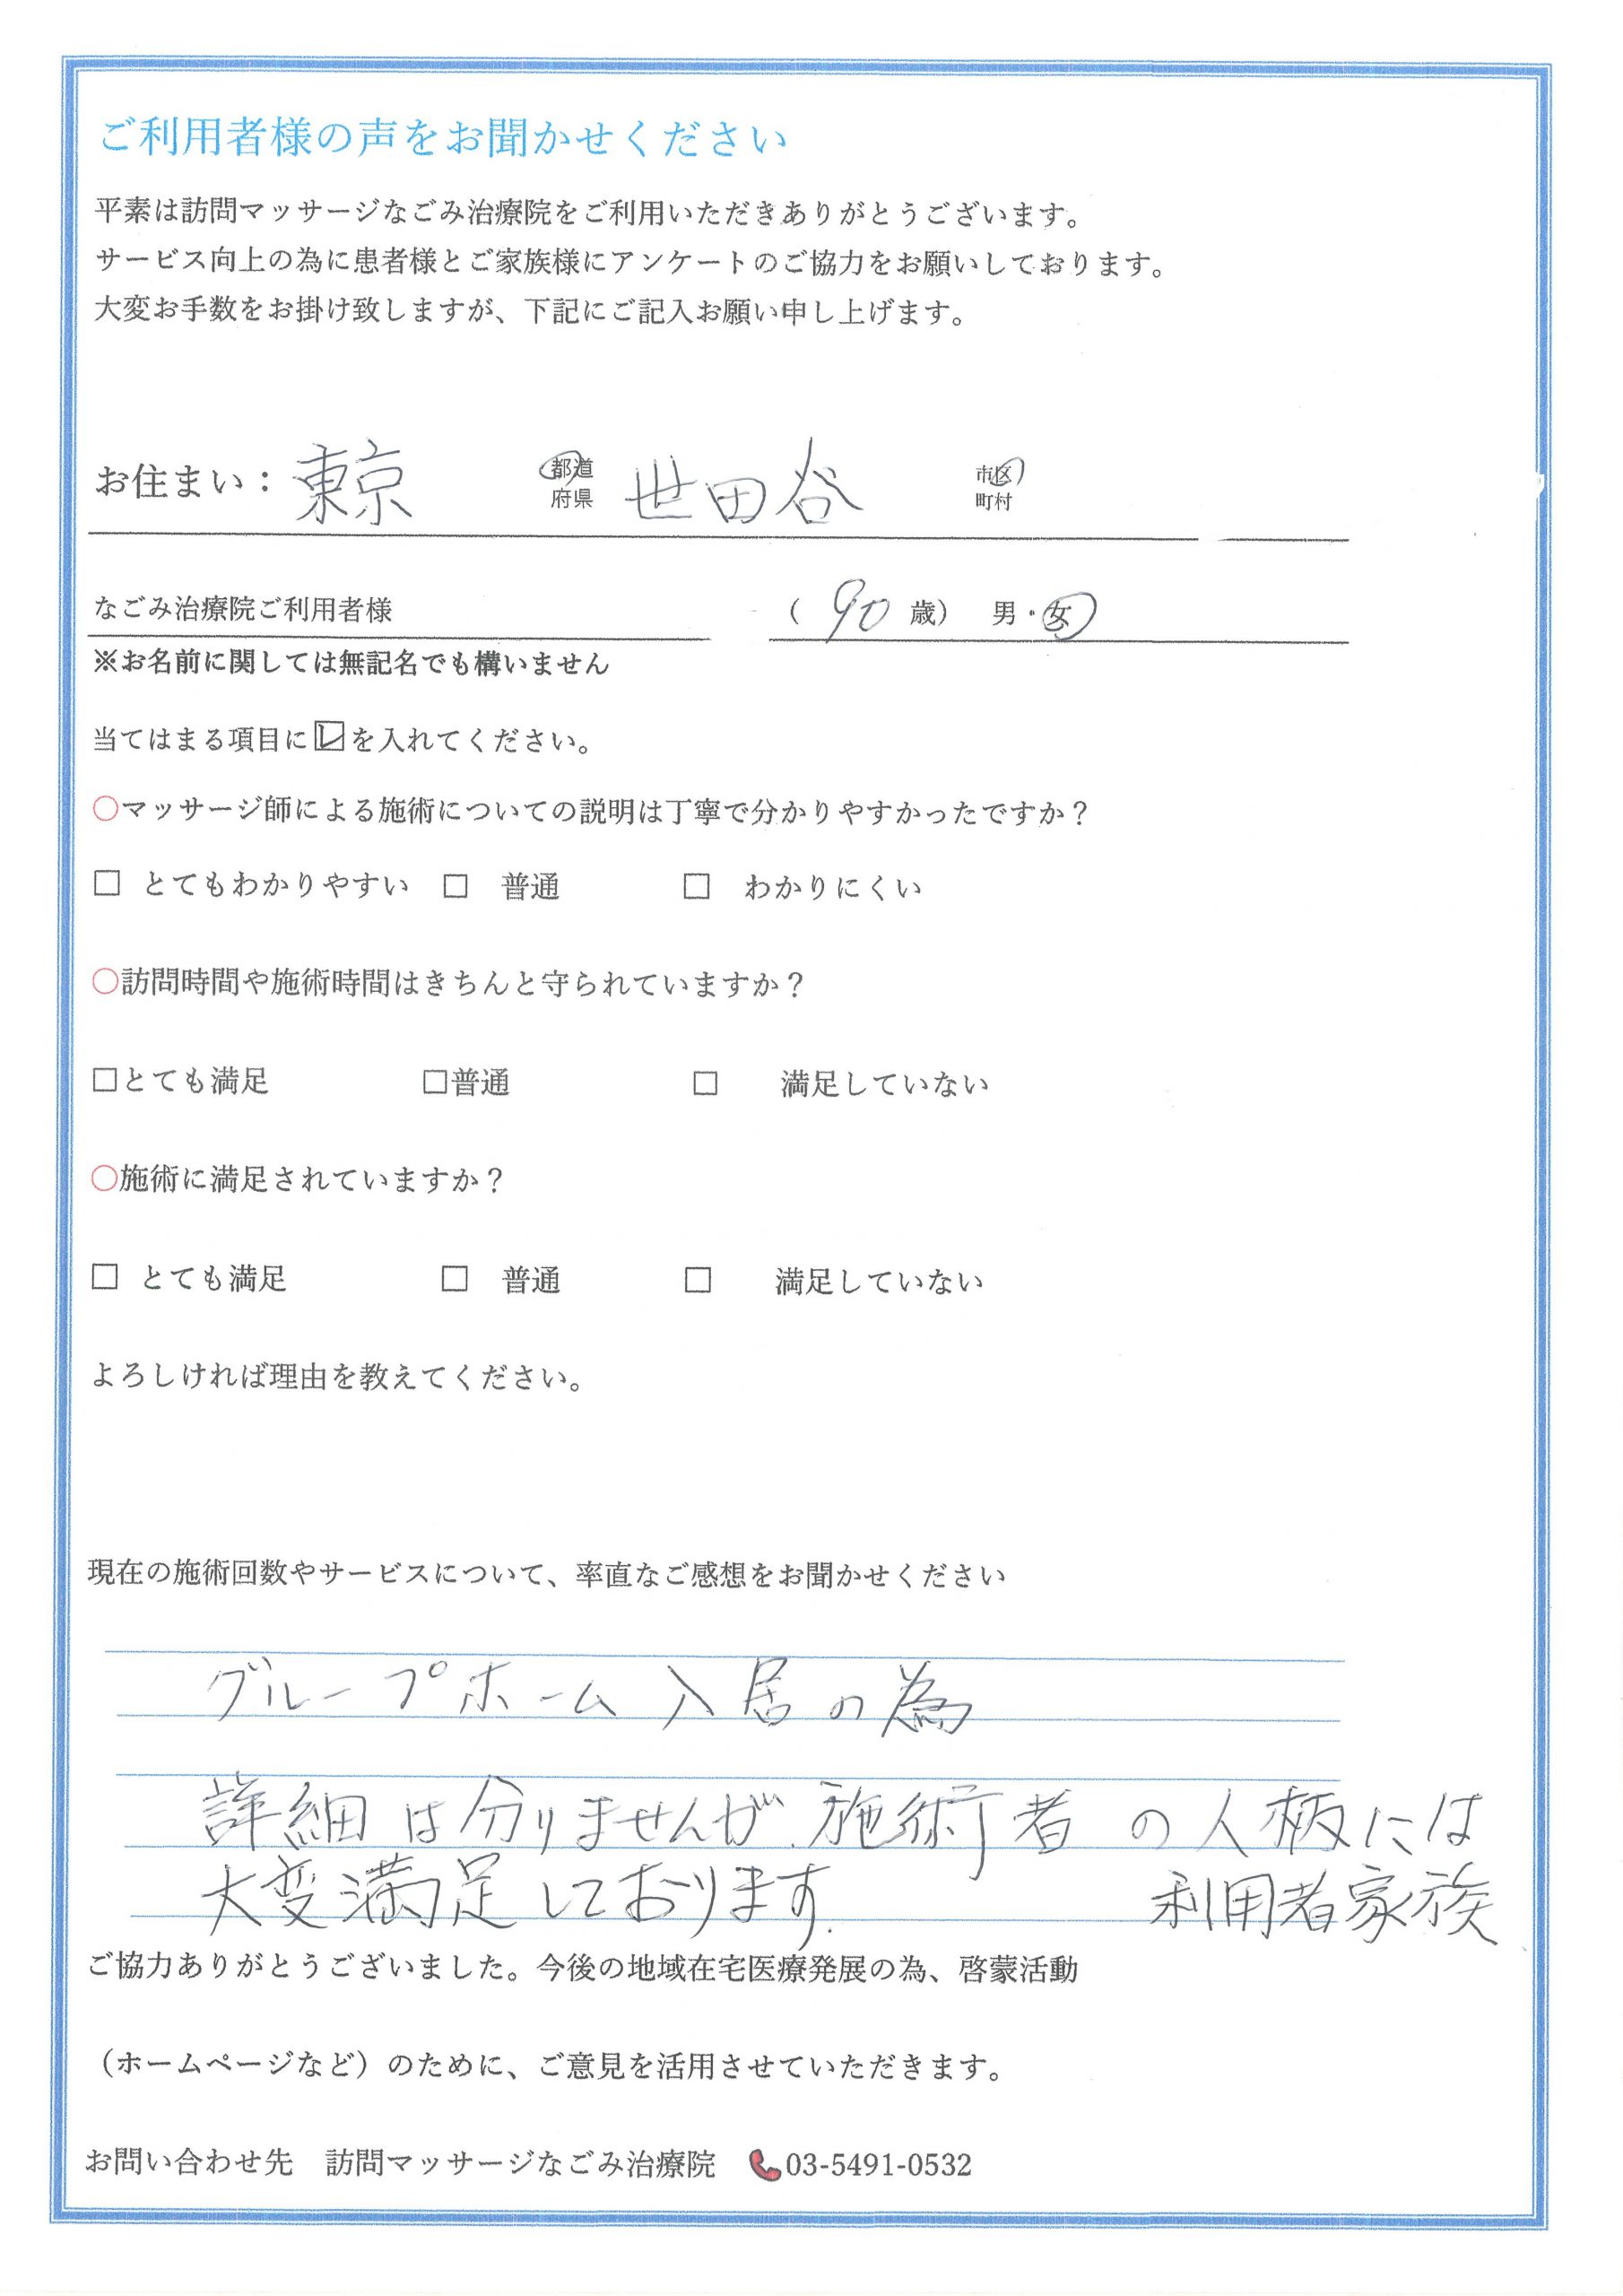 ご利用者様の声をお聞かせください
平素は訪問マッサージなごみ治療院をご利用いただきありがとうございます。
サービス向上の為に患者様とご家族様にアンケートのご協力をお願いしております。
大変お手数をお掛け致しますが、下記にご記入お願い申し上げます。
お住まい：東京 都道府県 世田谷 市区町村
なごみ治療院ご利用者様 （ 90 歳） 男・女
※お名前に関しては無記名でも構いません
当てはまる項目に☑を入れてください。
○マッサージ師による施術についての説明は丁寧で分かりやすかったですか？
□ とてもわかりやすい □ 普通 □ わかりにくい
○訪問時間や施術時間はきちんと守られていますか？
□とても満足 □普通 □ 満足していない
○施術に満足されていますか？
□ とても満足 □ 普通 □ 満足していない
よろしければ理由を教えてください。
現在の施術回数やサービスについて、率直なご感想をお聞かせください
グループホーム入居の為
詳細は分りませんが、施術者の人柄には
大変満足しております。 利用者家族
ご協力ありがとうございました。今後の地域在宅医療発展の為、啓蒙活動
（ホームページなど）のために、ご意見を活用させていただきます。
お問い合わせ先 訪問マッサージなごみ治療院 03-5491-0532